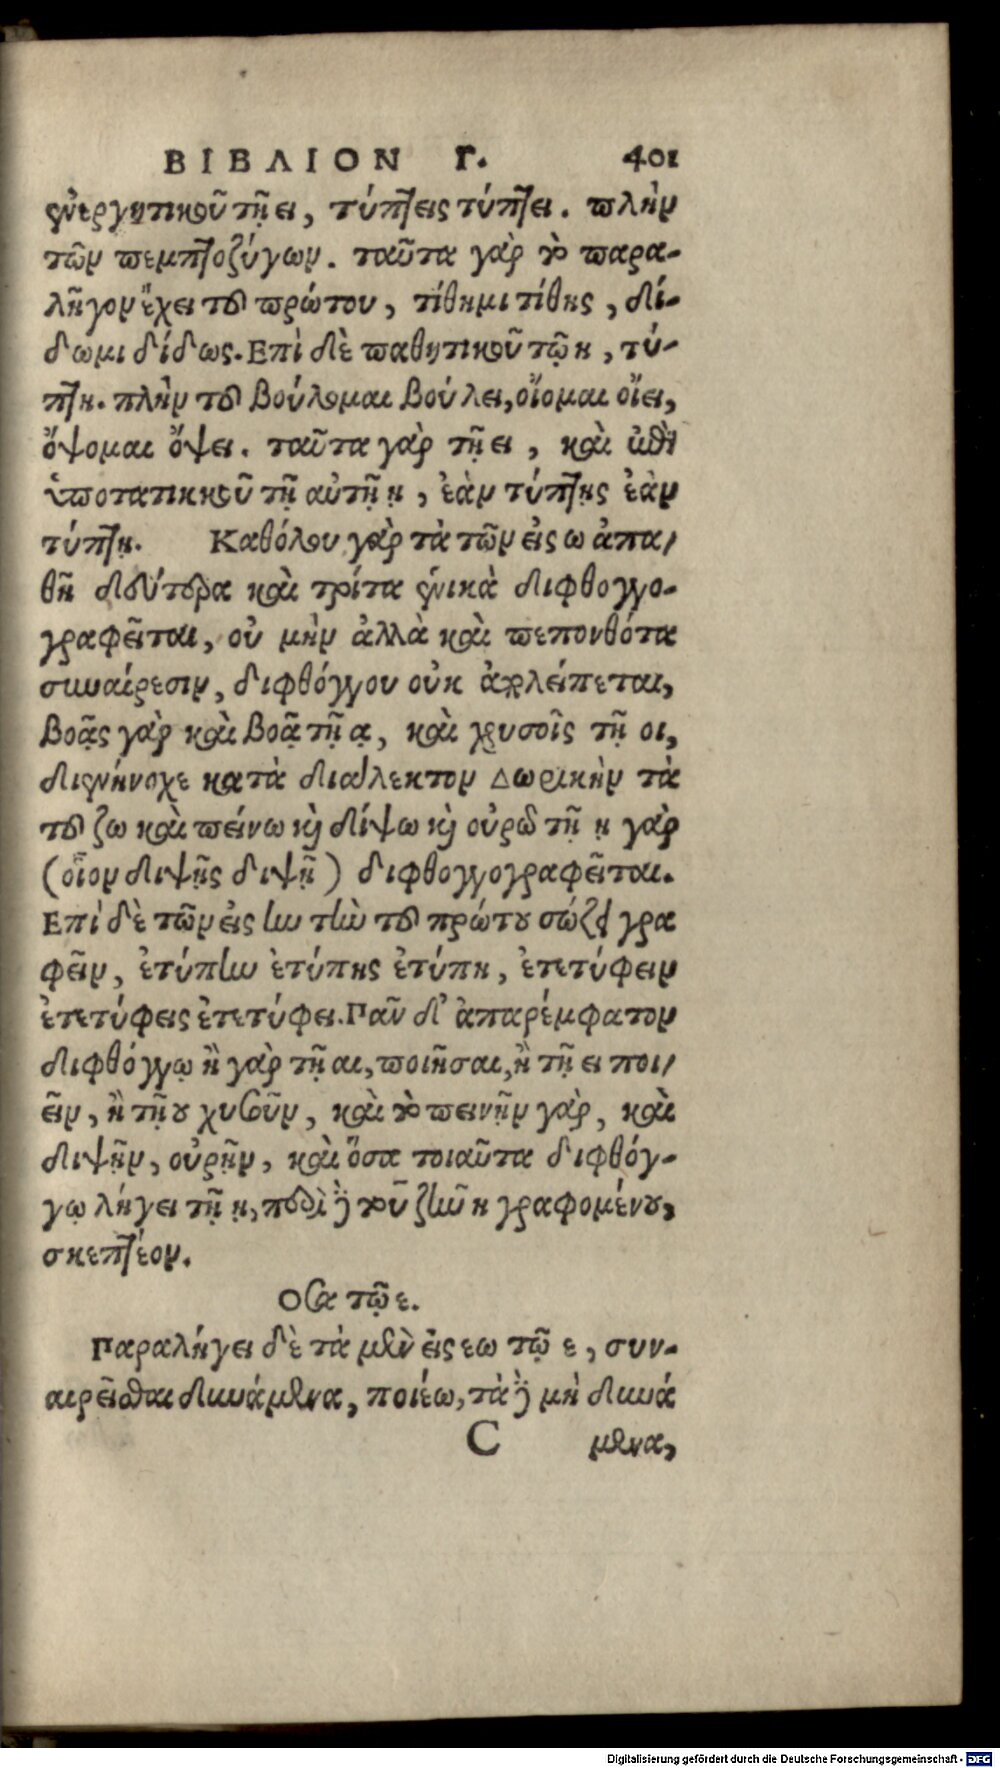 ΒΙΒΛΙΟΝ Γ. 401
ἐνεργητικοῦ τῇ ει, τύπτεις τύπτει. πλὴν
τῶν πεμπτοζύγων. ταῦτα γὰρ τὸ παρα-
λῆγον ἔχει τοῦ πρώτου, τίθημι τίθης, δί-
δωμι δίδως. Επὶ δὲ παθητικοῦ τῷ η, τύ-
πτη. πλὴν τοῦ βούλομαι βούλει, οἴομαι οἴει,
ὄψομαι ὄψει. ταῦτα γὰρ τῇ ει, καὶ ἐπὶ
ὑποτατικκοῦ τῇ αὐτῇ ῃ, ἐὰν τύπτῃς ἐὰν
τύπτῃ. Καθόλου γὰρ τὰ τῶν εἰς ω ἀπα-
θῆ δεύτερα καὶ τρίτα ἑνικὰ διφθογγο-
γραφεῖται, οὐ μὴν ἀλλὰ καὶ πεπονθότα
συναίρεσιν, διφθόγγου οὐκ ἀπολείπεται,
βοᾷς γὰρ καὶ βοᾷ τῇ ᾳ, καὶ χρυσοῖς τῇ οι,
διενήνοχε κατὰ διάλεκτον Δωρικὴν τὰ
τοῦ ζω καὶ πείνω καὶ δίψω καὶ οὐρῶ τῇ ῃ γὰρ
(οἷον διψῇς διψῇ) διφθογγογραφεῖται.
Επὶ δὲ τῶν εἰς ην τὴν τοῦ πρώτου σώζει γρα
φεῖν, ἐτύπην ἐτύπης ἐτύπη, ἐτετύφειν
ἐτετύφεις ἐτετύφει. Πᾶν δ' ἀπαρέμφατον
διφθόγγῳ ἢ γὰρ τῇ αι, ποιῆσαι, ἢ τῇ ει ποι-
εῖν, ἢ τῇ ου χυσοῦν, καὶ τὸ πεινῇν γὰρ, καὶ
διψῇν, οὐρῇν, καὶ ὅσα τοιαῦτα διφθόγ-
γῳ λήγει τῇ ῃ, περὶ δὲ τοῦ ζῆν η γραφομένου,
σκεπτέον.
Οσα τῷ ε.
Παραλήγει δὲ τὰ μὲν εἰς εω τῷ ε, συν-
αιρεῖσθαι δυνάμενα, ποιέω, τὰ δὲ μὴ δυνά
C μενα,
Digitalisierung gefördert durch die Deutsche Forschungsgemeinschaft - DFG